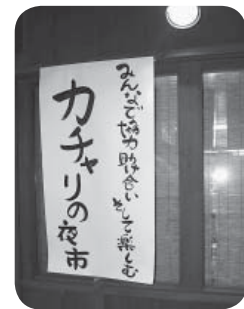 みんなで協力助け合いそして楽しむ
カチャリの夜市